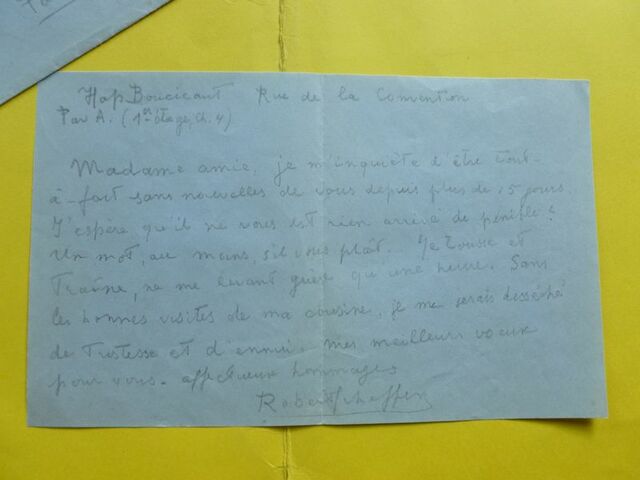 Hop. Boucicaut Rue de la Convention
Pav A. (1er étage, Ch. 4)
Madame amie, je m'inquiète d'être tout-
à-fait sans nouvelles de vous depuis plus de 15 jours.
J'espère qu'il ne vous est rien arrivé de pénible?
Un mot, au moins, s'il vous plaît. Je tousse et
traîne, ne me levant guère qu'une heure. Sans
les bonnes visites de ma cousine, je me serais desséché
de tristesse et d'ennui. Mes meilleurs voeux
pour vous. affectueux hommages
Robert Scheffer